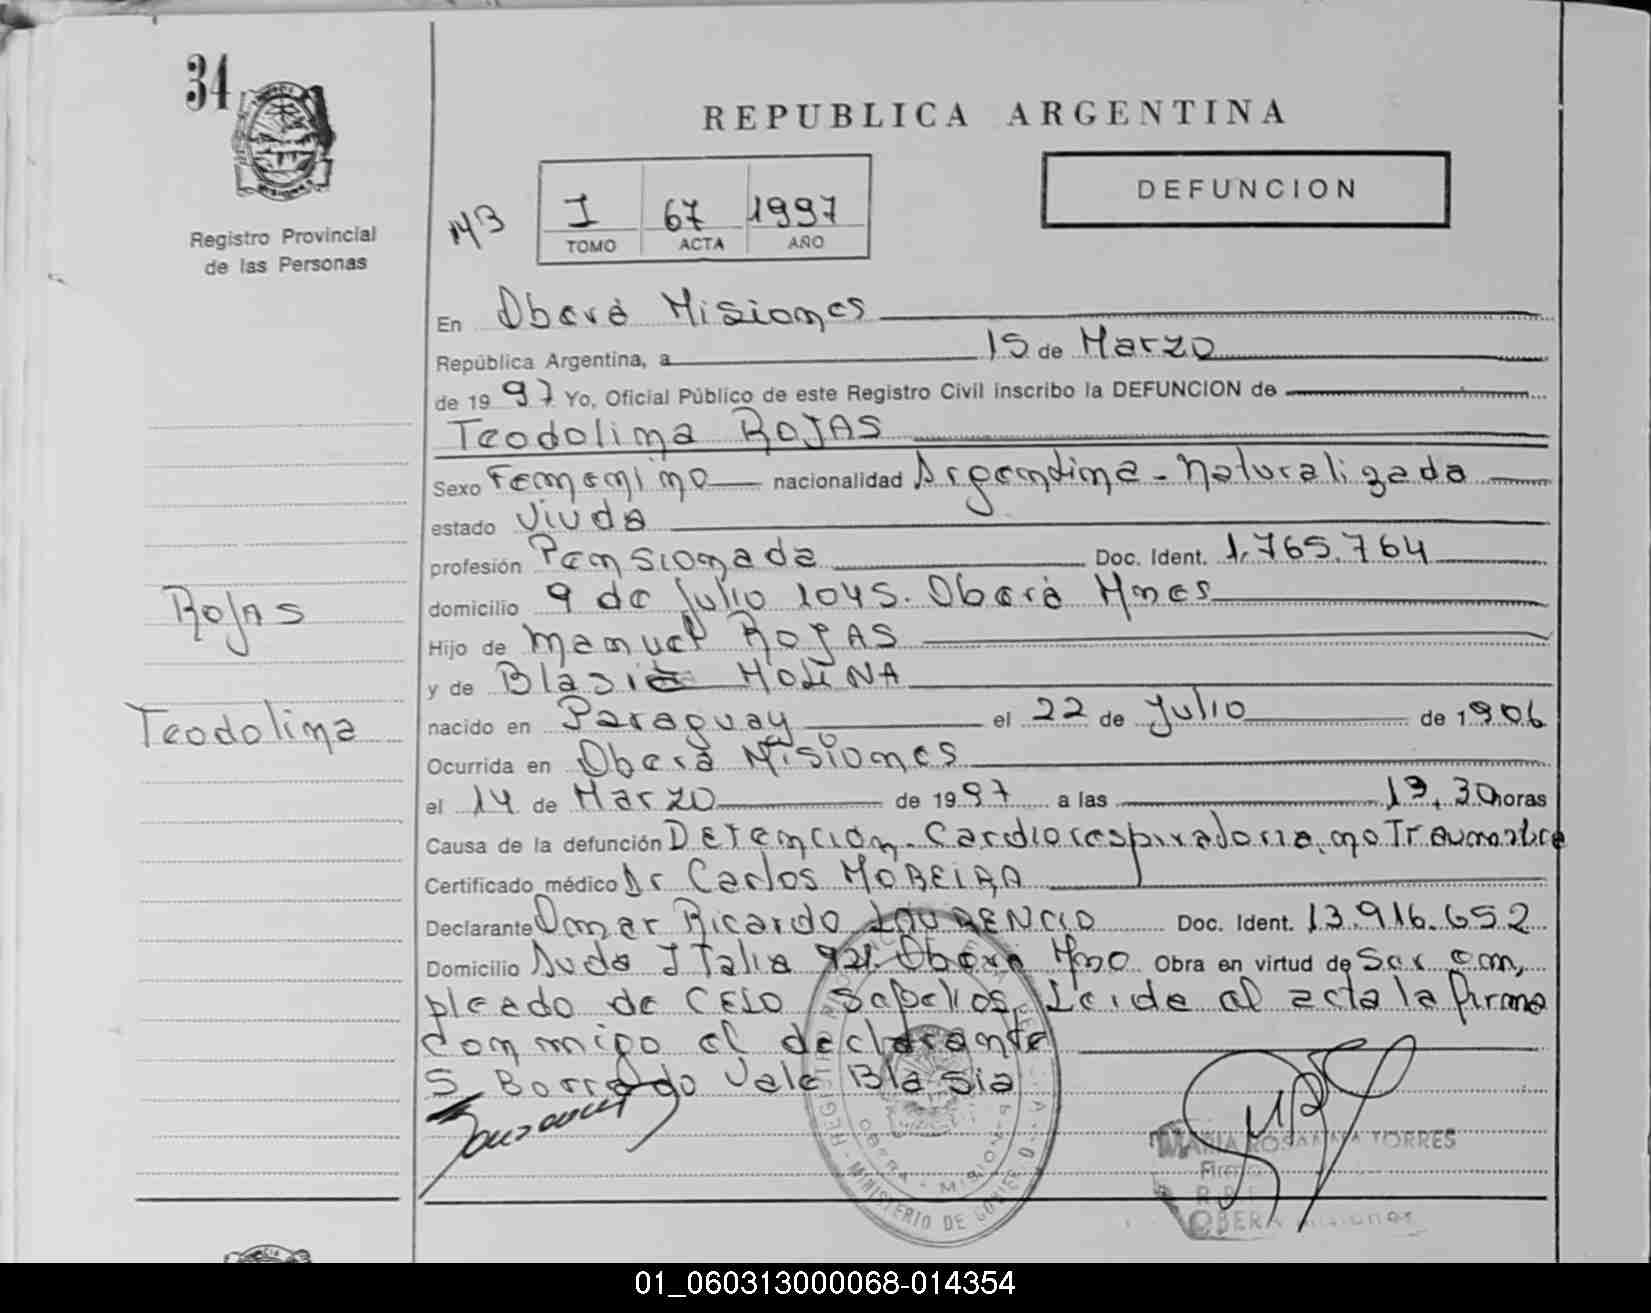 34
REPUBLICA ARGENTINA
DEFUNCION
Registro Provincial
de las Personas
I 67 1997
TOMO ACTA AÑO
En Oberá Misiones
República Argentina, a 15 de Marzo
de 1997 Yo, Oficial Público de este Registro Civil inscribo la DEFUNCION de
Teodolina ROJAS
Sexo Femenino nacionalidad Argentina - Naturalizada
estado Viuda
profesión Pensionada Doc. Ident. 1.765.764
domicilio 9 de Julio 1045. Oberá Mnes
ROJAS
Hijo de Manuel ROJAS
y de Blasia MOLINA
Teodolina
nacido en Paraguay el 22 de Julio de 1906
Ocurrida en Oberá Misiones
el 14 de Marzo de 1997 a las 19,30 horas
Causa de la defunción Detención Cardiorespiratoria no Traumatica
Certificado médico Dr Carlos MOREIRA
Declarante Omar Ricardo LOURENCIO Doc. Ident. 13.916.652
Domicilio Avda Italia 921. Oberá Obra en virtud de Ser em,
pleado de CELO Sepelios. Leida el acta la firma
conmigo el declarante
S. Borrado Vale Blasia
MARIA ROSANNA TORRES
OBERA Misiones
REGISTRO
MINISTERIO DE GOBIERNO
OBERA - MISIONES
01_060313000068-014354